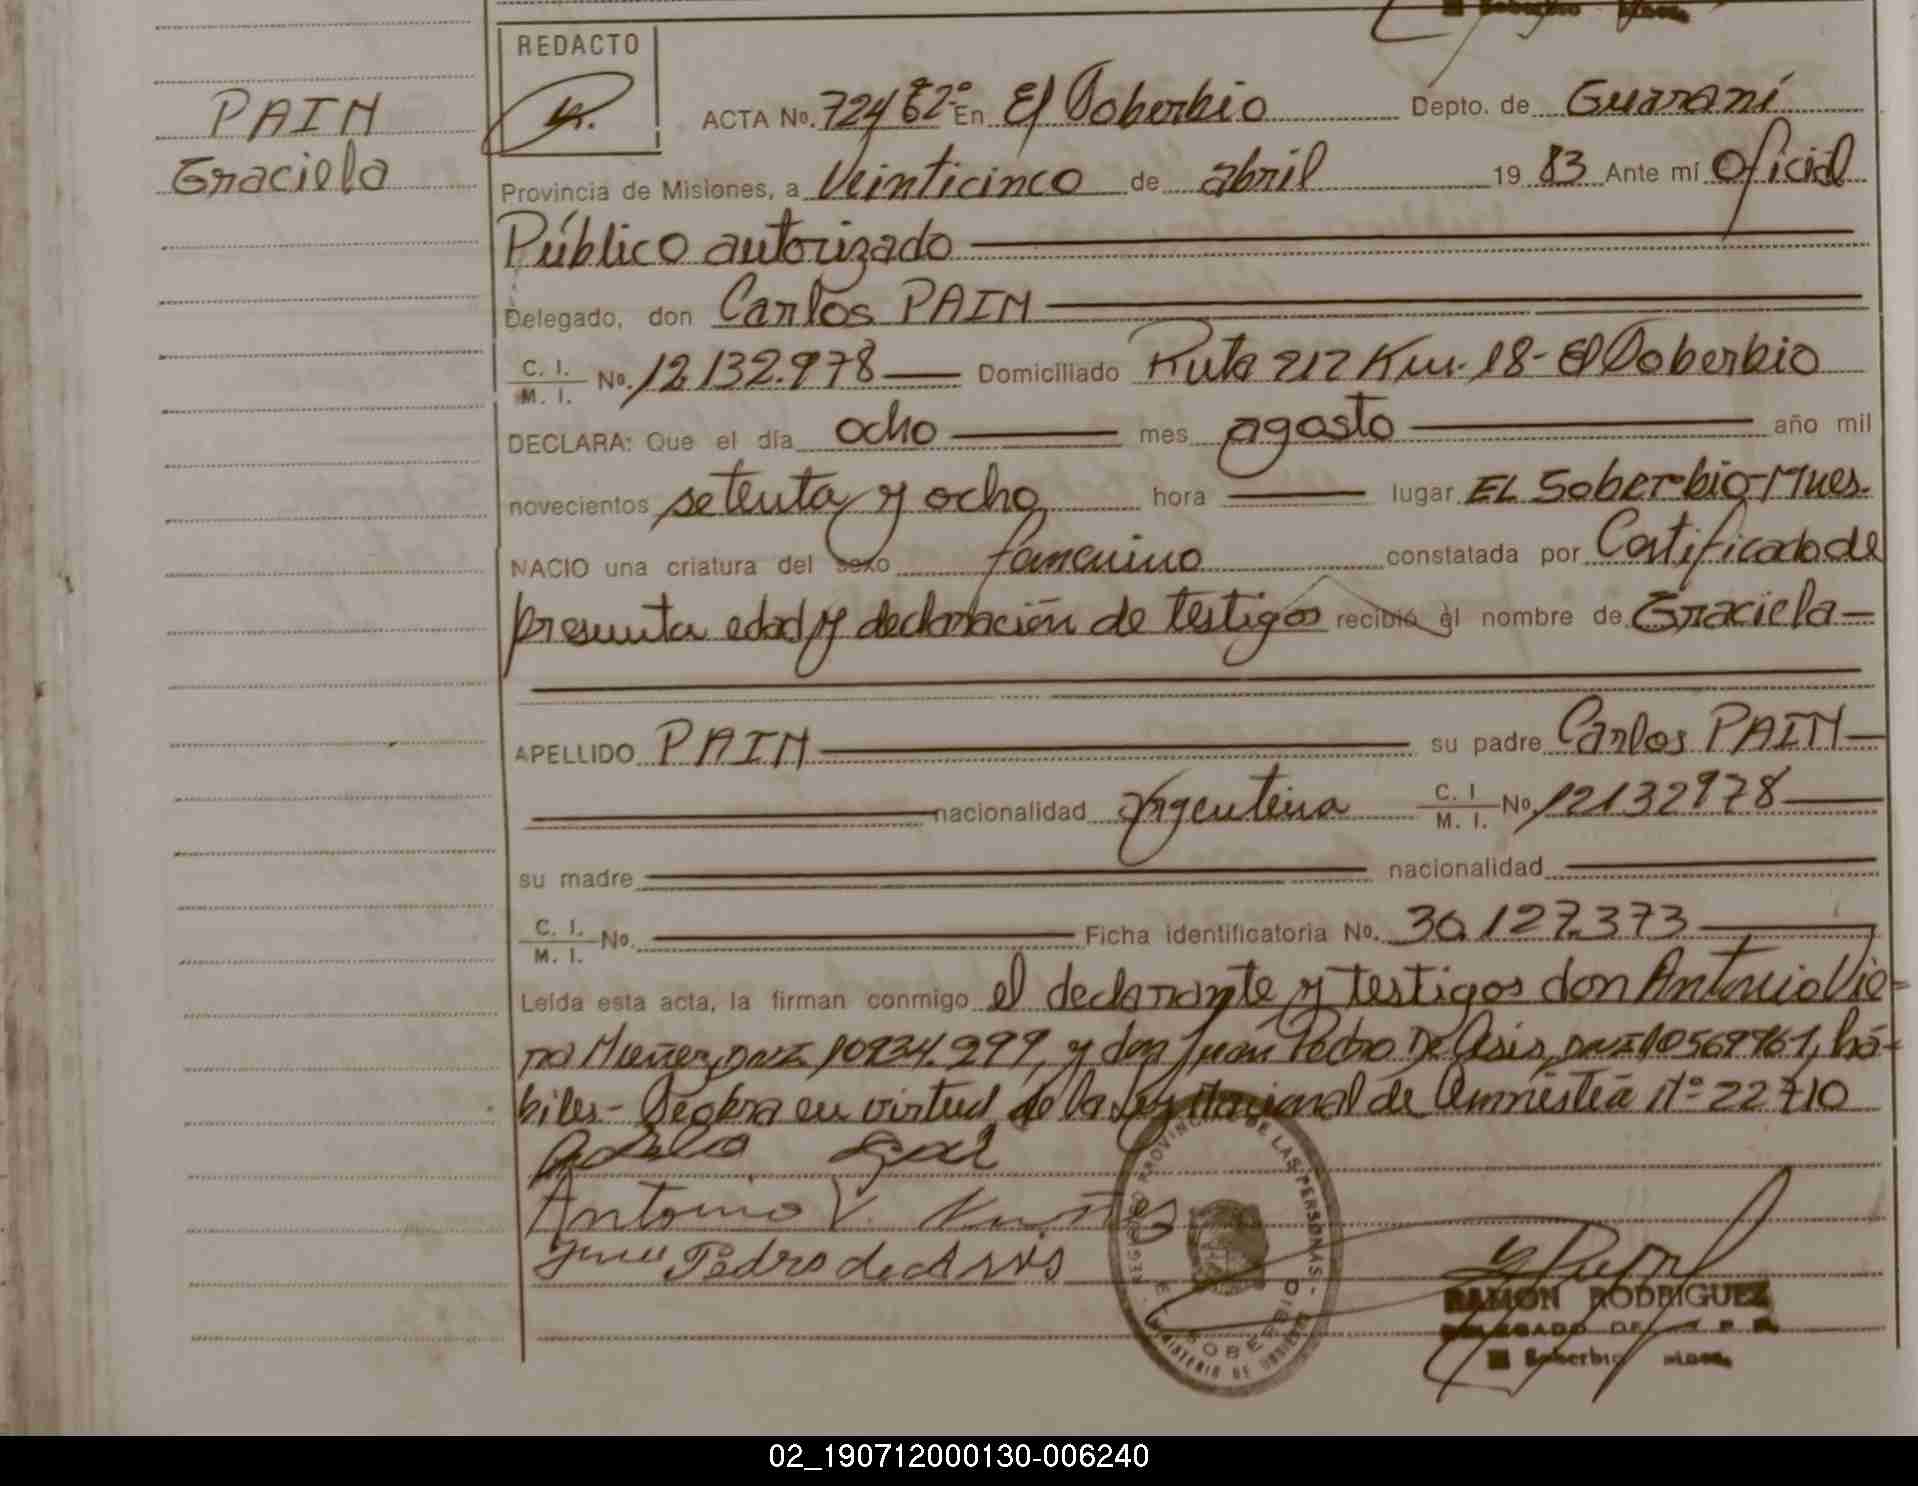 REDACTO
PAIM
Graciela
ACTA No. 724 62º En El Soberbio Depto. de Guaraní
Provincia de Misiones, a Veinticinco de abril 19 83 Ante mí Oficial
Público autorizado
Delegado, don Carlos PAIM
C. I. M. I. No. 12.132.978 Domiciliado Ruta 212 Km. 18 - El Soberbio
DECLARA: Que el día ocho mes agosto año mil
novecientos setenta y ocho hora lugar EL Soberbio-Mnes.
NACIO una criatura del sexo femenino constatada por Certificado de
presunta edad y declaración de testigos recibió el nombre de Graciela
APELLIDO PAIM su padre Carlos PAIM
nacionalidad Argentina C. I. M. I. No. 12132978
su madre nacionalidad
C. I. M. I. No. Ficha identificatoria No. 30.127.373
Leída esta acta, la firman conmigo el declarante y testigos don Antonio Vie-
ra DNI 10934.299, y don Juan Pedro De Asis, DNI 10569761, há-
biles- en virtud de la Ley Nacional de Amnistía Nº 22710
Antonio V.
Juan Pedro de Asis
REGISTRO PROVINCIAL DE LAS PERSONAS
EL SOBERBIO
MINISTERIO DE GOBIERNO
RAMON RODRIGUEZ
DELEGADO DEL R. P. P.
El Soberbio Mnes.
02_190712000130-006240